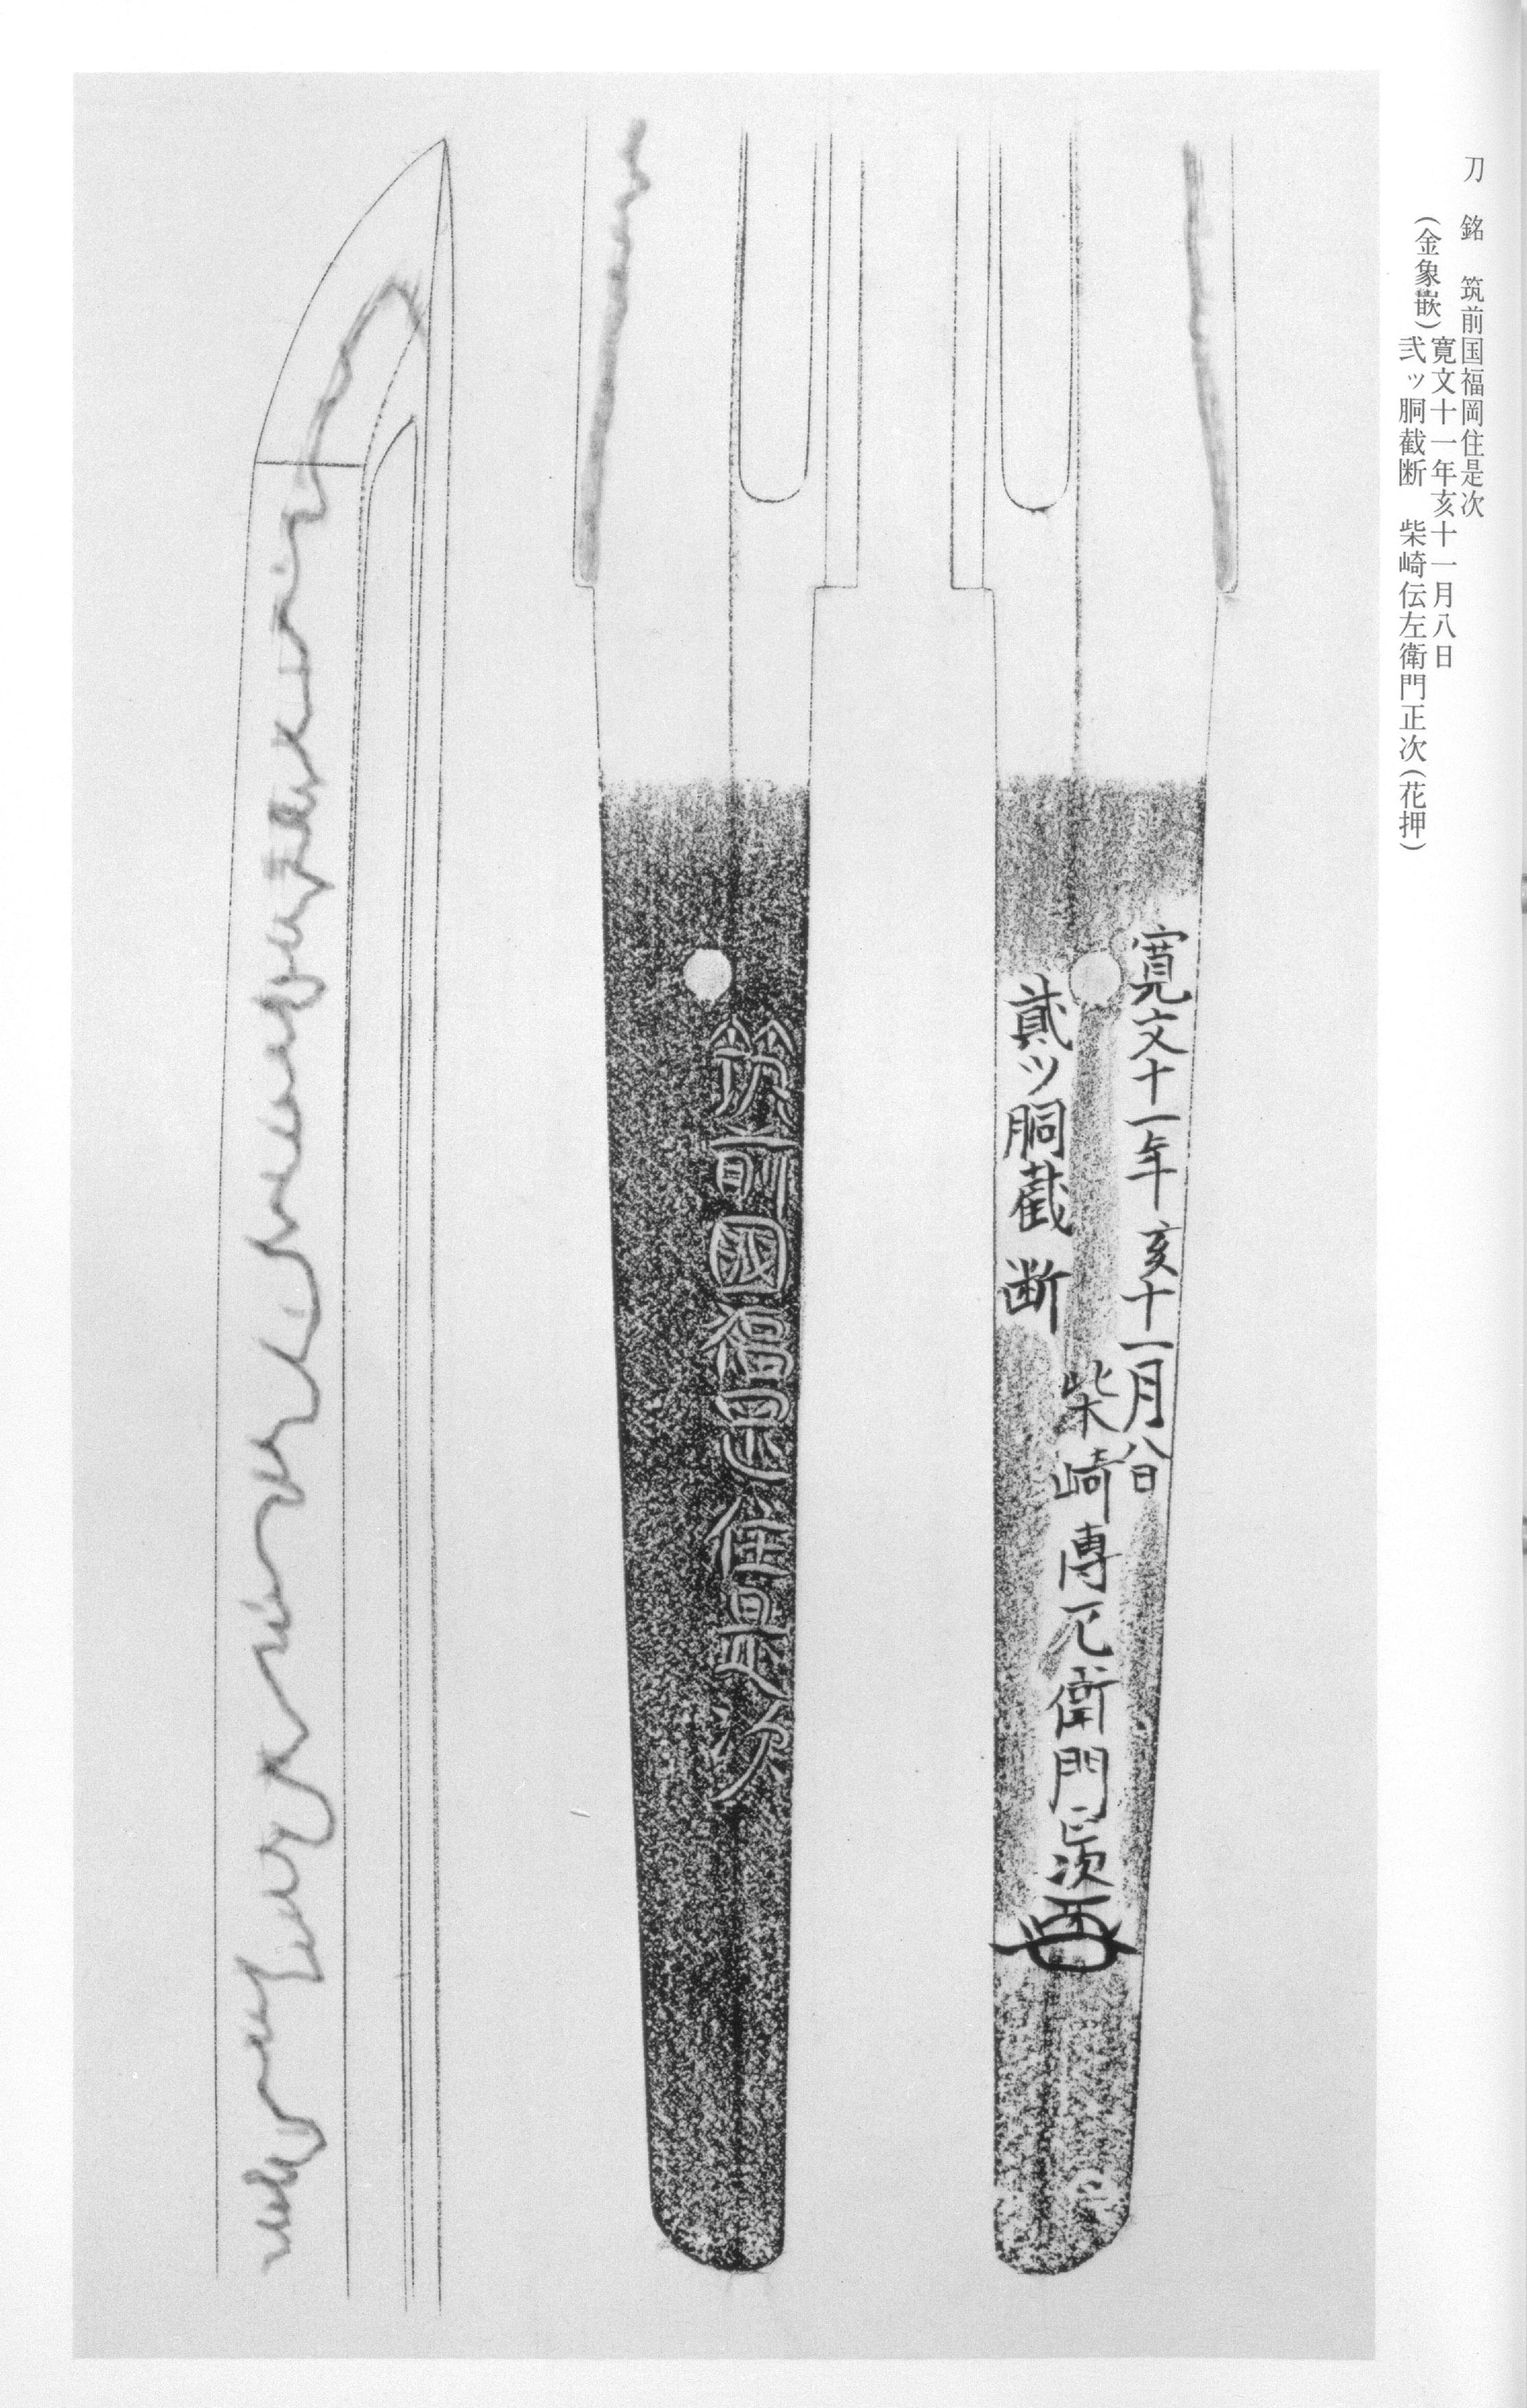 刀 銘 筑前国福岡住是次
寛文十一年亥十一月八日
(金象嵌)弐ッ胴截断 柴崎伝左衛門正次(花押)
寛文十一年亥十一月八日
貳ツ胴截断
柴崎傳左衛門正次
筑前國福岡住是次